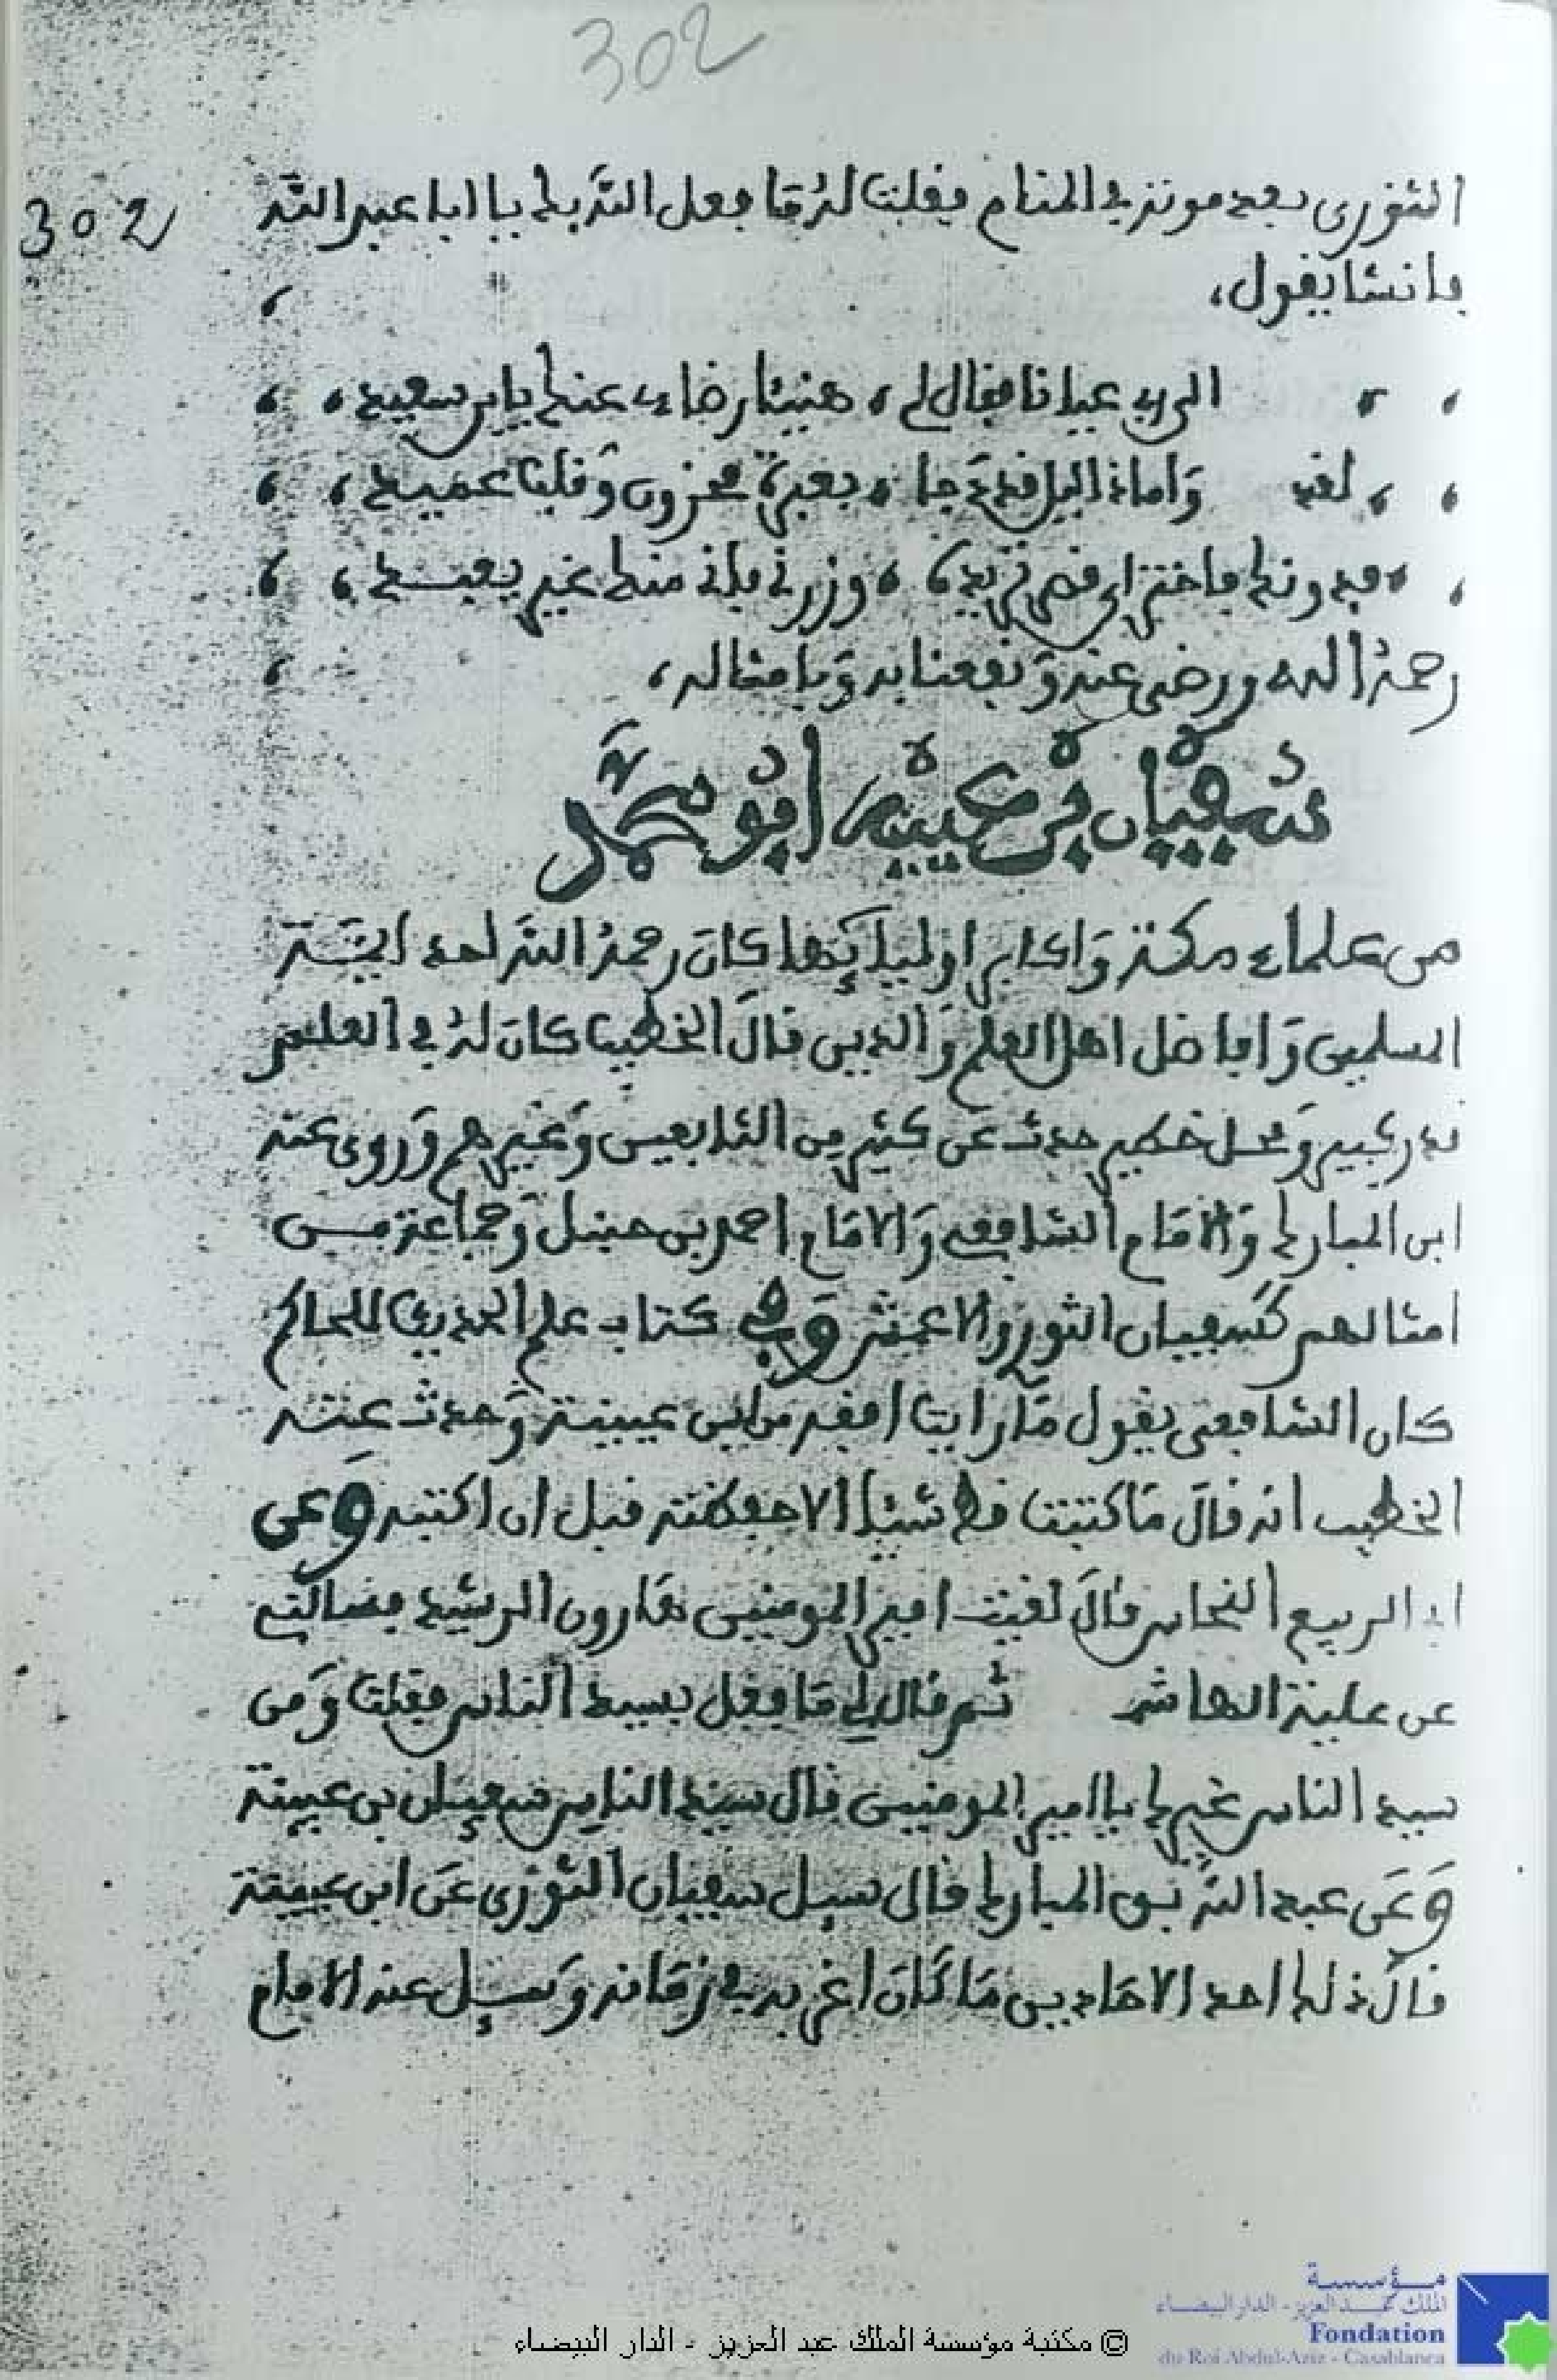 302
302
الثوري بعد موته في المنام فقلت له ما فعل الله بك يا ابا عبد الله
فانشا يقول،
الى ربي عيانا فقال لي، هنيئا رضاءي عنك يابن سعيد،
لقد، واما اذا اليل قد دجا، بعبرة محزون وقلب عميد،
فدونك فاختر اي قصر تريد، وزرني فاني منك غير بعيد،
رحمه الله ورضي عنه ونفعنا به وبامثاله،
سفيان بن عيينه ابو محمد
من علماء مكة واكابر اوليايها كان رحمه الله احد ايمة
المسلمين وافاضل اهل العلم والدين قال الخطيب كان له في العلم
قدر كبير ومحل خطير حدث عن كثير من التابعين وغيرهم وروى عنه
ابن المبارك والامام الشافعي والامام احمد بن حنبل وجماعة من
امثالهم كسفيان الثوري والاعمش وفي كتاب علم الحديث للحاكم
كان الشافعي يقول ما رايت افقه من ابن عيينة وحدث عنه
الخطيب انه قال ما كتبت قط شيئا الا حفظته قبل ان اكتبه وعن
ابي الربيع النحاس قال لقيت امير المومنين هارون الرشيد فسالته
عن علية الهاشم ثم قال لي ما فعل بسيد الناس فقلت ومن
سيد الناس غيرك يا امير المومنين قال سيد الناس سفيان بن عيينة
وعن عبد الله بن المبارك قال سيل سفيان الثوري عن ابن عيينة
قال ذلك احد الاحادين ما كان اغربه في زمانه وسيل عنه الامام
© مكتبة مؤسسة الملك عبد العزيز - الدار البيضاء
مؤسسة
الملك عبد العزيز - الدار البيضاء
Fondation
du Roi Abdul-Aziz - Casablanca